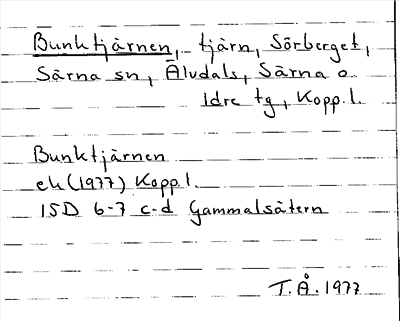 Bunktjärnen, tjärn, Sörberget,
Särna sn, Älvdals, Särna o
Idre tg, Kopp. l.
Bunktjärnen
ek (1977) Kopp l.
15D 6-7 c-d Gammalsätern
T.Å. 1977